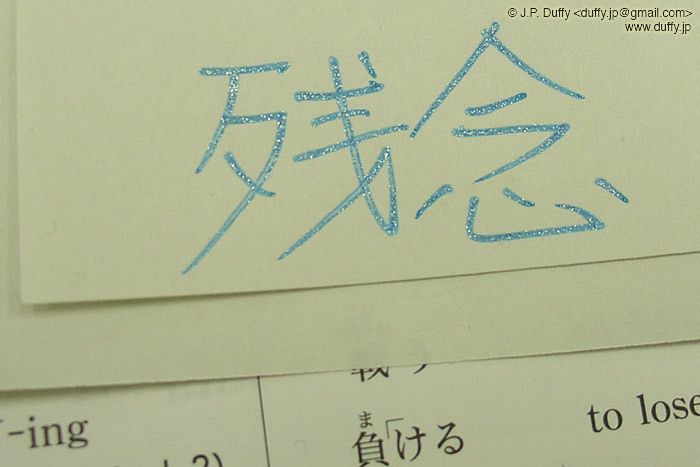 © J.P. Duffy <duffy.jp@gmail.com>
www.duffy.jp
残念
-ing
ま
負ける
to lose